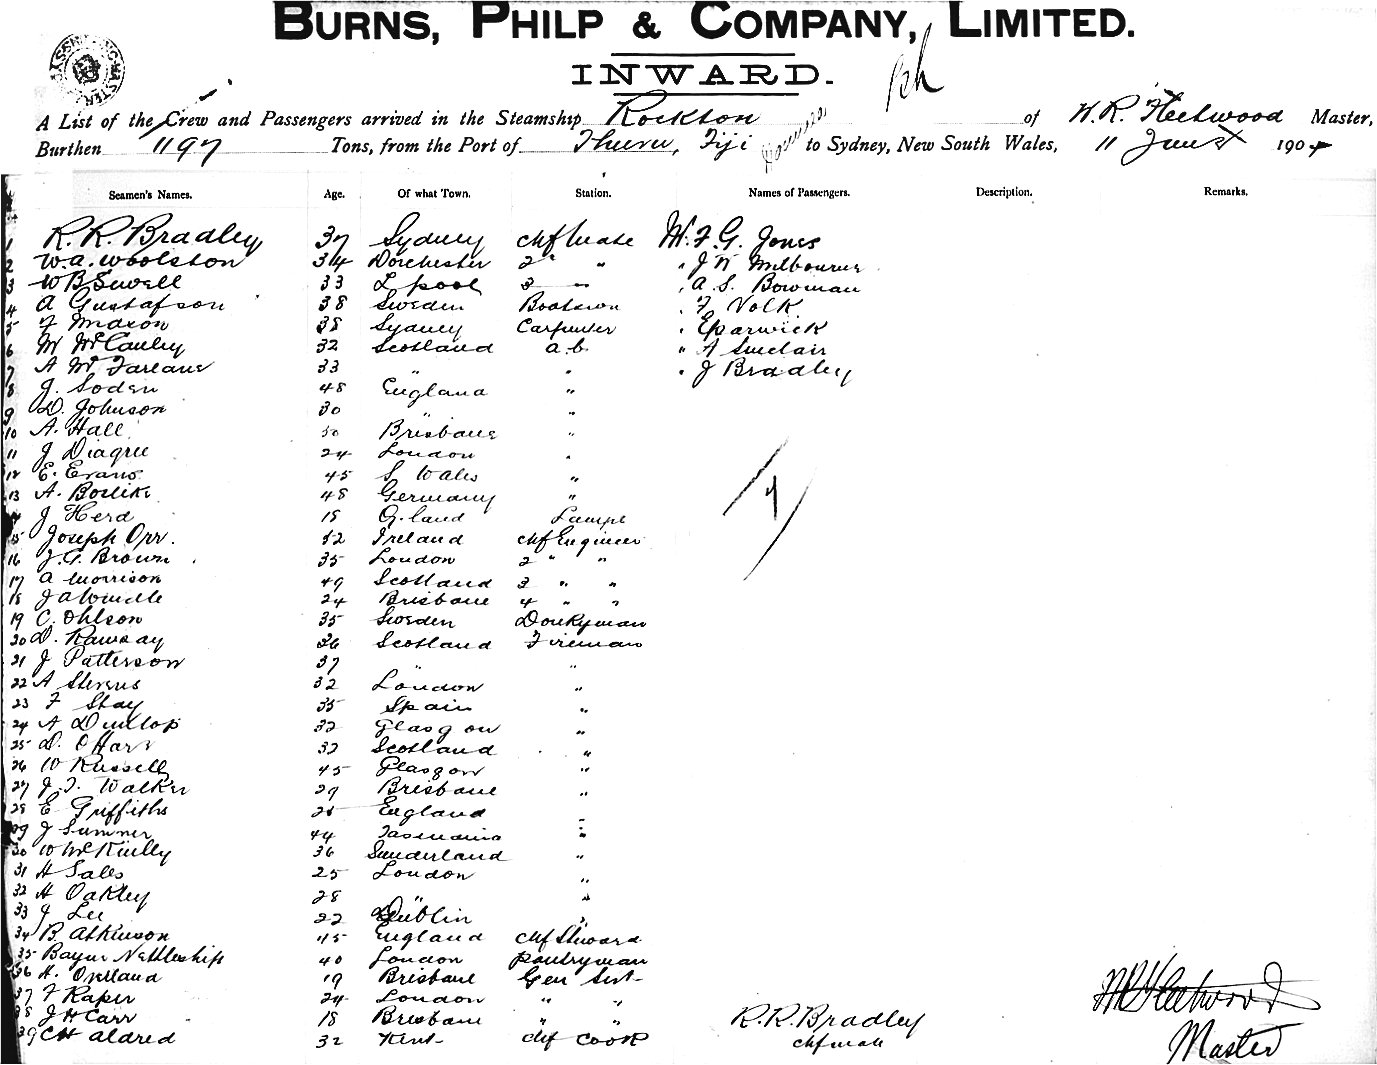 BURNS, PHILP & COMPANY, LIMITED.
INWARD.
A List of the Crew and Passengers arrived in the Steamship Rockton of W. R. Fleetwood Master,
Burthen 1197 Tons, from the Port of Fiji to Sydney, New South Wales, 11 June 1904
Seamen's Names. Age. Of what Town. Station. Names of Passengers. Description. Remarks.
1 R. R. Bradley 37 Sydney chf mate Mr F. G. Jones
2 W. A. Woolston 34 Dorchester 2 " " " J W Milbourne
3 W B Sewell 33 L pool 3 " A. S. Bowman
4 A Gustafson 38 Sweden Boatswn " F Volk
5 F 38 Sydney Carpenter " E Parwick
6 M McCauley 32 Scotland a.b. " A Sinclair
7 A McFarlane 33 " " " J Bradley
8 J. Soden 48 England "
9 D. Johnson 30 " "
10 A. Hall Brisbane "
11 J 24 London "
12 E. Evans 45 S Wales "
13 A. 48 Germany "
14 J Herd 18 Lamps
15 Joseph Orr. 52 Ireland chf Engineer
16 J. G. Brown 35 London 2 " "
17 A Morrison 49 Scotland 3 " "
18 24 Brisbane 4 " "
19 C. Ohlson 35 Sweden Donkyman
20 D. Ramsay 36 Scotland Fireman
21 J Patterson 37 " "
22 A Stevens 32 London "
23 F Shay 35 Spain "
24 A Dunlop 32 Glasgow "
25 D. OHare 32 Scotland "
26 W Russell 45 Glasgow "
27 J. T. Walker 29 Brisbane "
28 E Griffiths England "
29 J Sumner 44 Tasmania "
30 W McKielly 36 Sunderland "
31 H Sales 25 London "
32 H Oakley 28 " "
33 J Lee 22 Dublin "
34 B. Atkinson 45 England chf Steward
35 Nettleship 40 London Pantryman
36 H. 19 Brisbane Gen Sert
37 F Raper 24 London " "
38 J H Carr 18 Brisbane " "
39 CH Aldred 32 Kent chf Cook
R. R. Bradley
chf mate
WR Fleetwood
Master
7